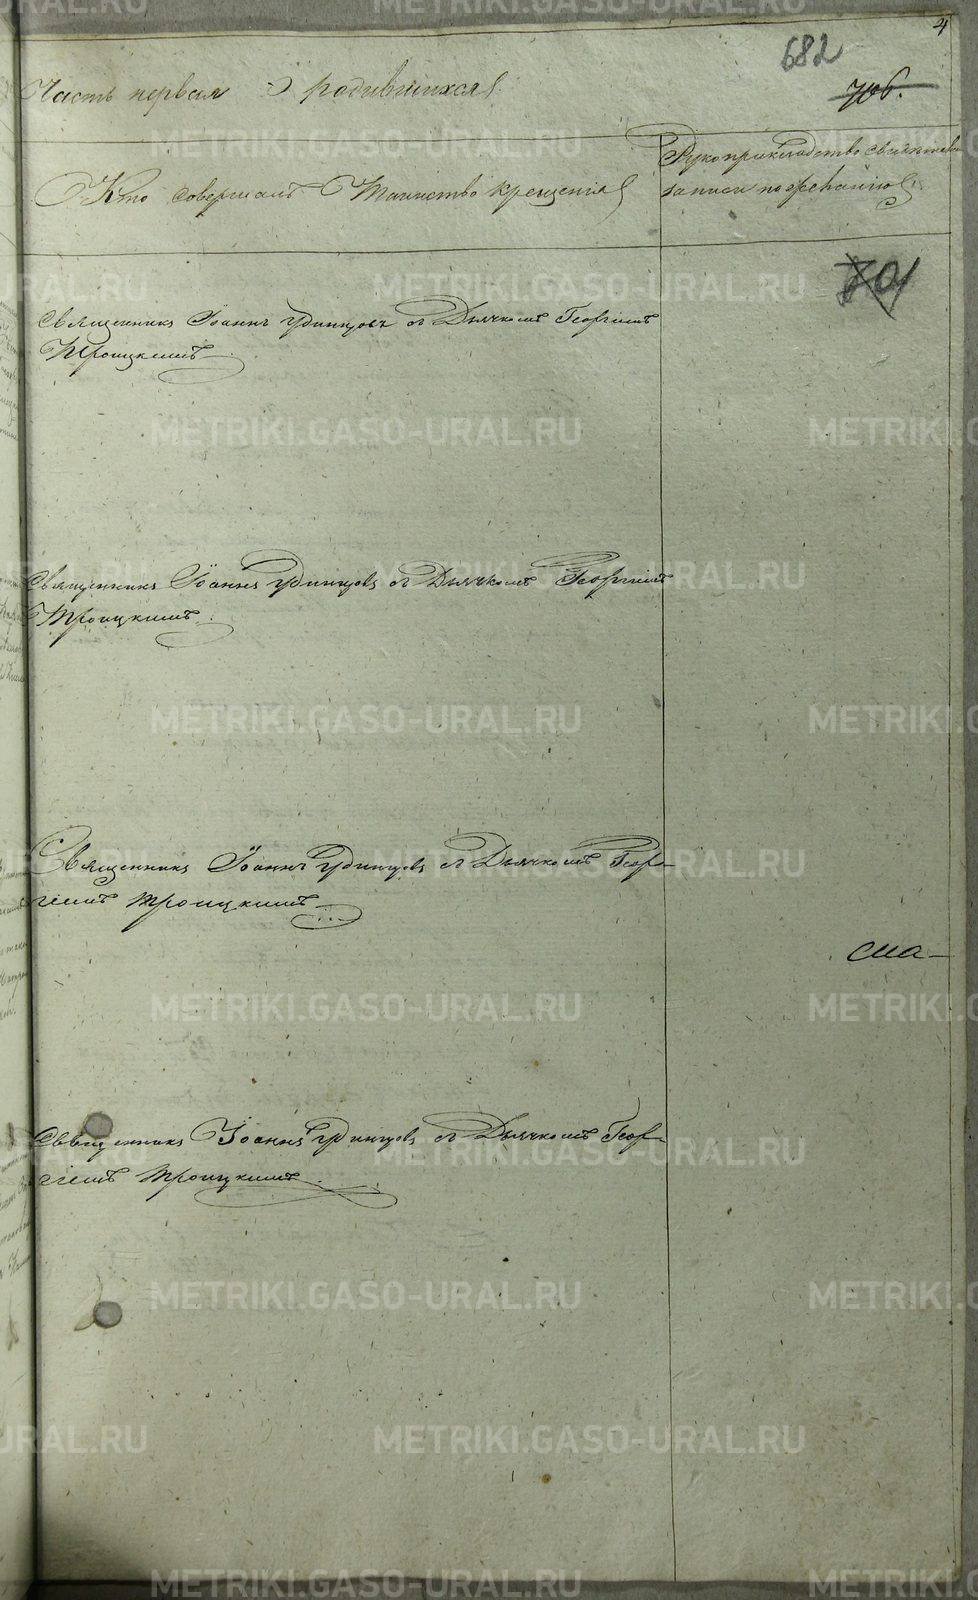 4
682
706.
Часть первая О родившихся
Кто совершалъ Таинство крещенія
Рукоприкладство свидѣтелей
записи по желанію
701
Священникъ Іоаннъ Удинцовъ съ Дьячкомъ Георгіемъ
Троицкимъ
Священникъ Іоаннъ Удинцовъ съ Дьячкомъ Георгіемъ
Троицкимъ
Священникъ Іоаннъ Удинцовъ съ Дьячкомъ Геор-
гіемъ Троицкимъ
сма-
Священникъ Іоаннъ Удинцовъ съ Дьячкомъ Геор-
гіемъ Троицкимъ
METRIKI.GASO-URAL.RU